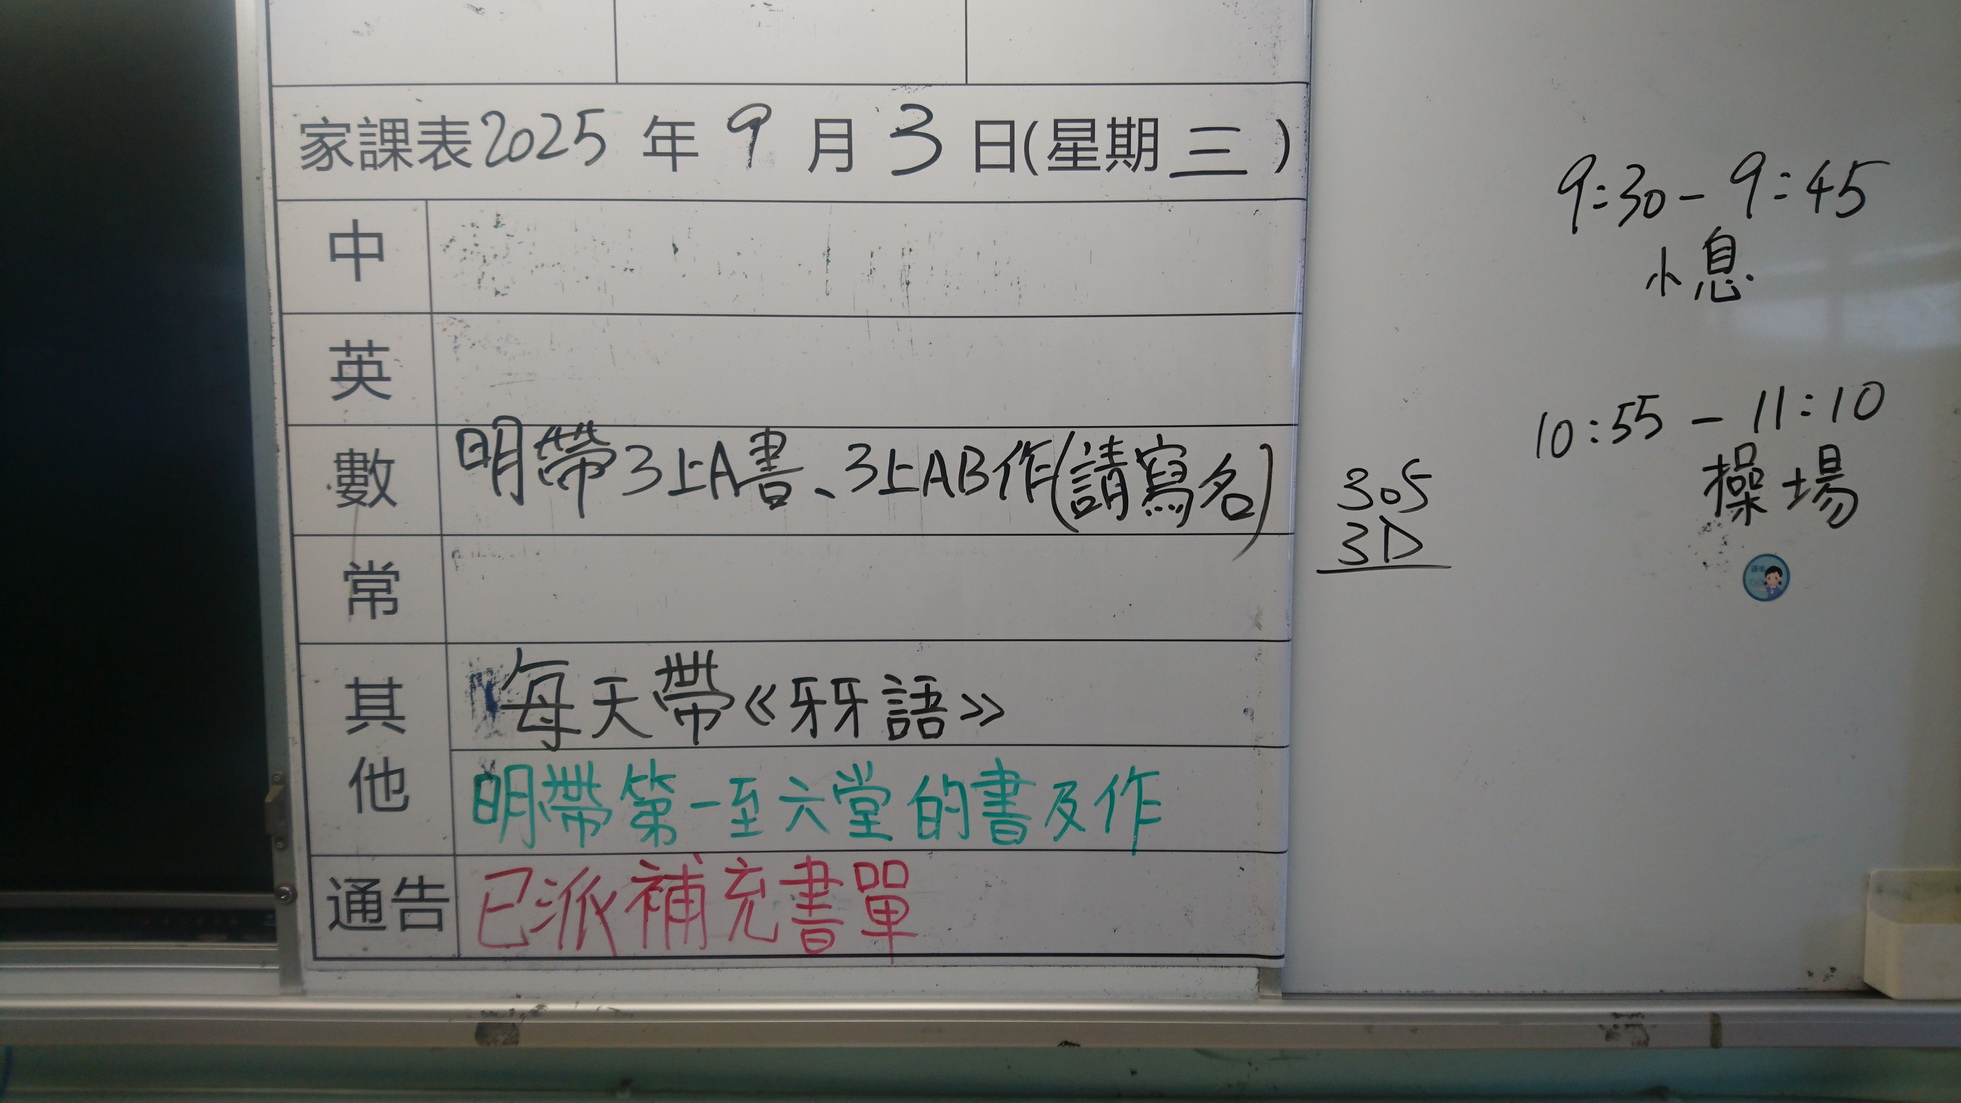 家課表2025年9月3日(星期三)
中
英
數 明帶3上A書、3上AB作(請寫名)
常
其他 每天帶《牙牙語》
明帶第一至六堂的書及作
通告 已派補充書單
305
3D
9:30-9:45
小息
10:55-11:10
操場